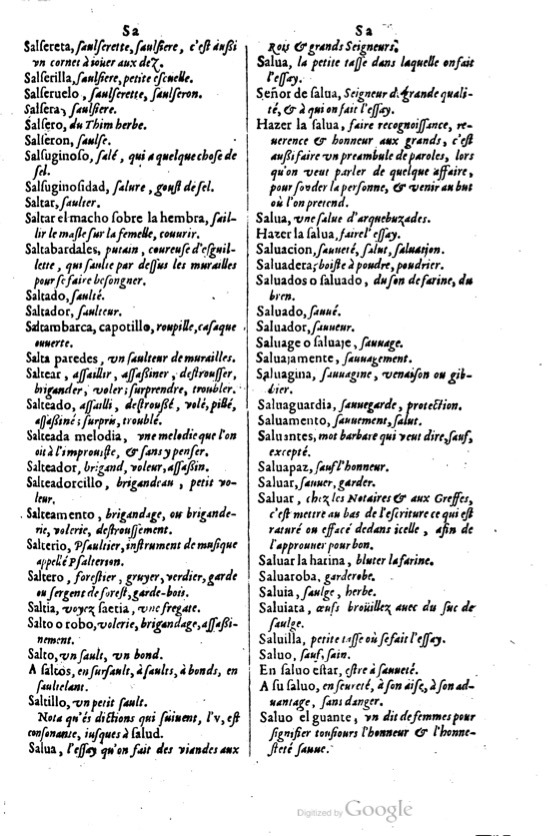 Sa
Salsereta, saulserette, saulsiere, c'est aussi
vn cornet à ioüer aux dez.
Salserilla, saulsiere, petite escuelle.
Salseruelo, saulserette, saulseron.
Salsera, saulsiere.
Salsero, du Thim herbe.
Salseron, saulse.
Salsuginoso, salé, qui a quelque chose de
sel.
Salsuginosidad, salure, goust de sel.
Saltar, saulter.
Saltar el macho sobre la hembra, sail-
lir le masle sur la femelle, couurir.
Saltabardales, putain, coureuse d'esguil-
lette, qui saulte par dessus les murailles
pour se faire besongner.
Saltado, saulté.
Saltador, saulteur.
Saltambarca, capotillo, roupille, casaque
ouuerte.
Salta paredes, vn saulteur de murailles.
Saltear, assaillir, assassiner, destrousser,
brigander, voler; surprendre, troubler.
Salteado, assailli, destroussé, volé, pillé,
assassiné; surpris, troublé.
Salteada melodia, vne melodie que l'on
oit à l'improuiste, & sans y penser.
Salteador, brigand, voleur, assassin.
Salteadorcillo, brigandeau, petit vo-
leur.
Salteamento, brigandage, ou brigande-
rie, volerie, destroussement.
Salterio, Psaultier, instrument de musique
appellé Psalterion.
Saltero, forestier, gruyer, verdier, garde
ou sergent de forest, garde-bois.
Saltia, voyez saetia, vne fregate.
Salto o robo, volerie, brigandage, assassi-
nement.
Salto, vn sault, vn bond.
A saltos, en sursault, à saults, à bonds, en
saultelant.
Saltillo, vn petit sault.
Nota qu'és dictions qui suiuent, l'v, est
consonante, iusques à salud.
Salua, l'essay qu'on fait des viandes aux
Sa
Rois & grands Seigneurs.
Salua, la petite tasse dans laquelle on fait
l'essay.
Señor de salua, Seigneur de grande quali-
té, & à qui on fait l'essay.
Hazer la salua, faire recognoissance, re-
uerence & honneur aux grands, c'est
aussi faire vn preambule de paroles, lors
qu'on veut parler de quelque affaire,
pour sonder la personne, & venir au but
où l'on pretend.
Salua, vne salue d'arquebuzades.
Hazer la salua, faire l'essay.
Saluacion, sauueté, salut, saluation.
Saluadera, boiste à poudre, poudrier.
Saluados o saluado, du son de farine, du
bren.
Saluado, sauué.
Saluador, sauueur.
Saluage o saluaje, sauuage.
Saluajamente, sauuagement.
Saluagina, sauuagine, venaison ou gib-
bier.
Saluaguardia, sauuegarde, protection.
Saluamento, sauuement, salut.
Saluantes, mot barbare qui veut dire, sauf,
excepté.
Saluapaz, sauf l'honneur.
Saluar, sauuer, garder.
Saluar, chez les Notaires & aux Greffes,
c'est mettre au bas de l'escriture ce qui est
raturé ou effacé dedans icelle, afin de
l'approuuer pour bon.
Saluar la harina, bluter la farine.
Saluaroba, garderobe.
Saluia, saulge, herbe.
Saluiata, œufs broüillez auec du suc de
saulge.
Saluilla, petite tasse où se fait l'essay.
Saluo, sauf, sain.
En saluo estar, estre à sauueté.
A su saluo, en seureté, à son aise, à son ad-
uantage, sans danger.
Saluo el guante, vn dit de femmes pour
signifier tousiours l'honneur & l'honne-
steté sauue.
Digitized by Google